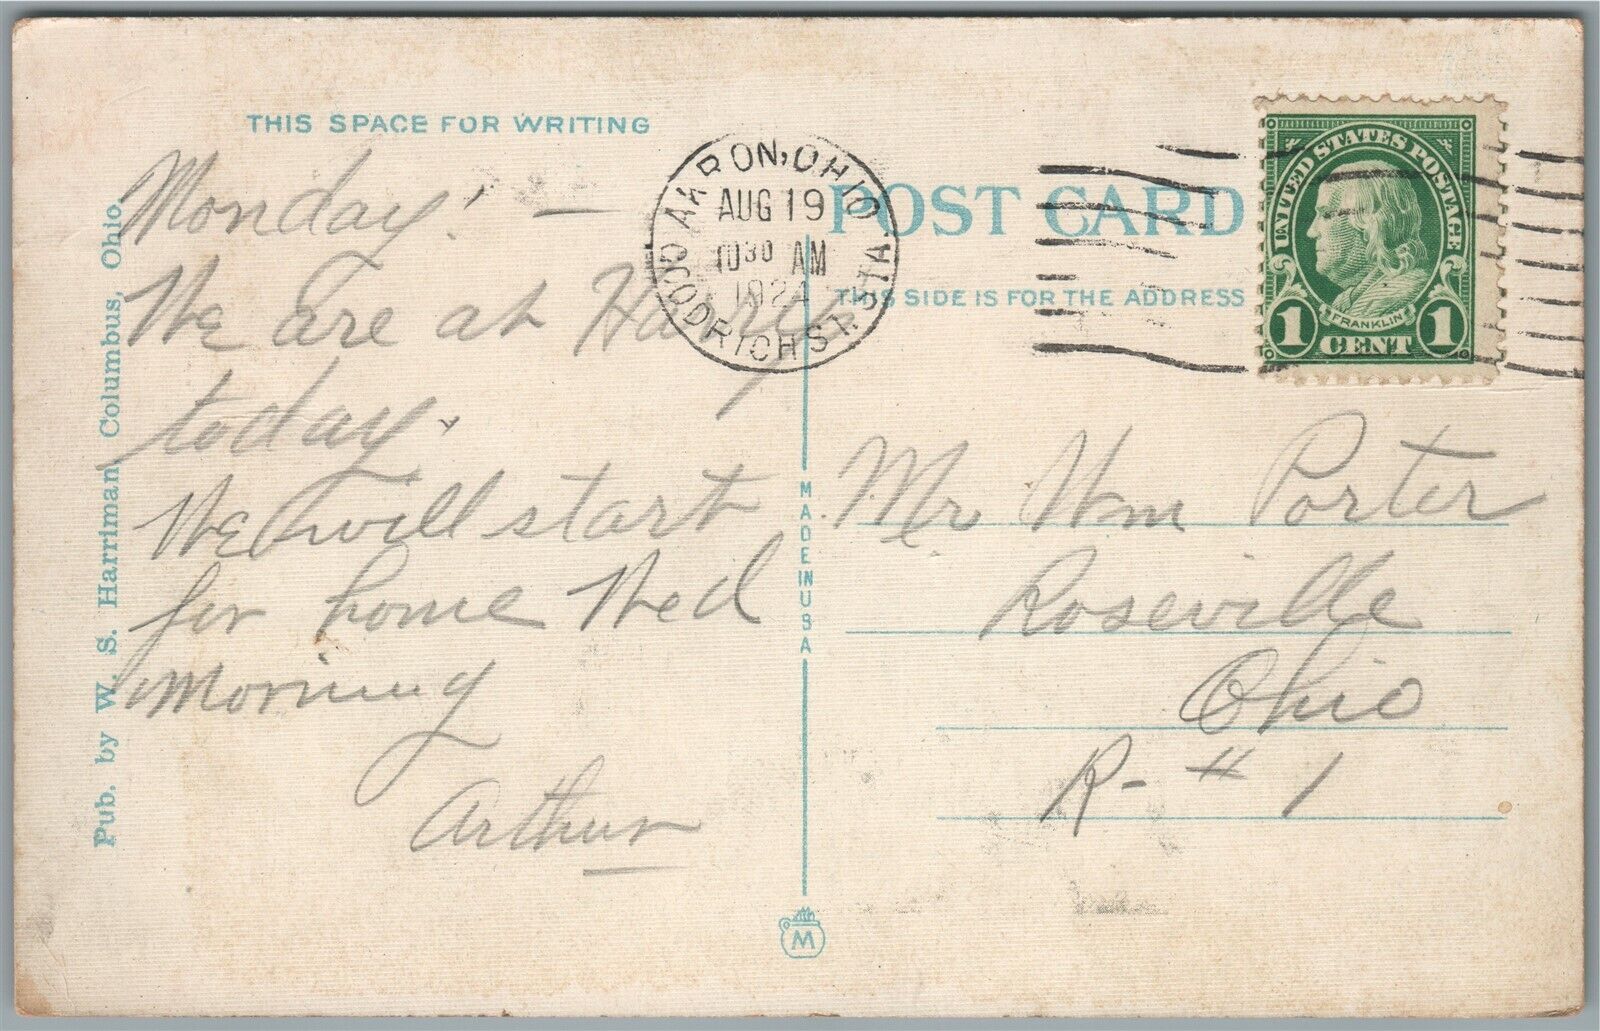 THIS SPACE FOR WRITING
Monday! —
We are at Harrys
today.
We will start
for home Wed
Morning
Arthur
Pub. by W. S. Harriman Columbus, Ohio
AKRON, OHIO
AUG 19
10 30 AM
1924
GOODRICH ST. STA.
POST CARD
THIS SIDE IS FOR THE ADDRESS
UNITED STATES POSTAGE
FRANKLIN
1 CENT 1
MADE IN USA
Mr Wm Porter
Roseville
Ohio
R- # 1
M